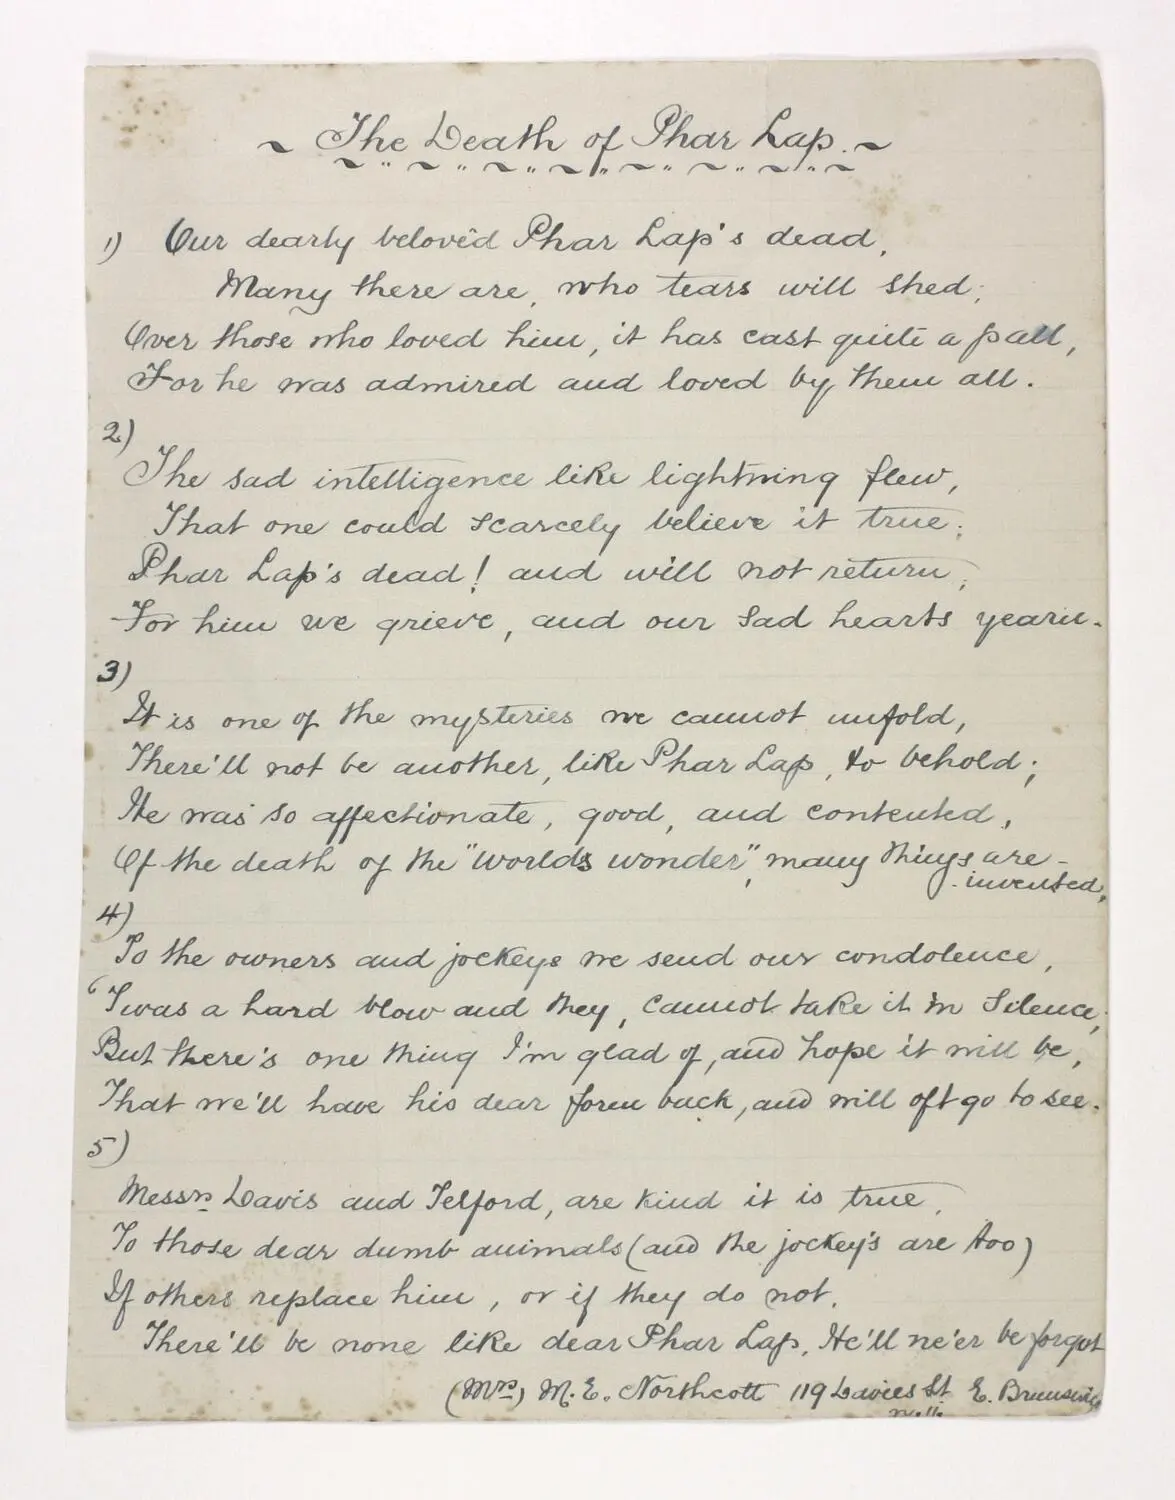 ~ The Death of Phar Lap. ~
1) Our dearly beloved Phar Lap's dead,
Many there are, who tears will shed;
Over those who loved him, it has cast quite a pall,
For he was admired and loved by them all.
2)
The sad intelligence like lightning flew,
That one could scarcely believe it true;
Phar Lap's dead! and will not return,
For him we grieve, and our sad hearts yearn.
3)
It is one of the mysteries we cannot unfold,
There'll not be another, like Phar Lap, to behold;
He was so affectionate, good, and contented,
Of the death of the "worlds wonder", many things are -
invented,
4)
To the owners and jockeys we send our condolence,
'Twas a hard blow and they, cannot take it in silence;
But there's one thing I'm glad of, and hope it will be,
That we'll have his dear form back, and will oft go to see.
5)
Messrs Davis and Telford, are kind it is true,
To those dear dumb animals (and the jockey's are too)
If others replace him, or if they do not,
There'll be none like dear Phar Lap, He'll ne'er be forgot
(Mrs) M. E. Northcott 119 Davies St E. Brunswick